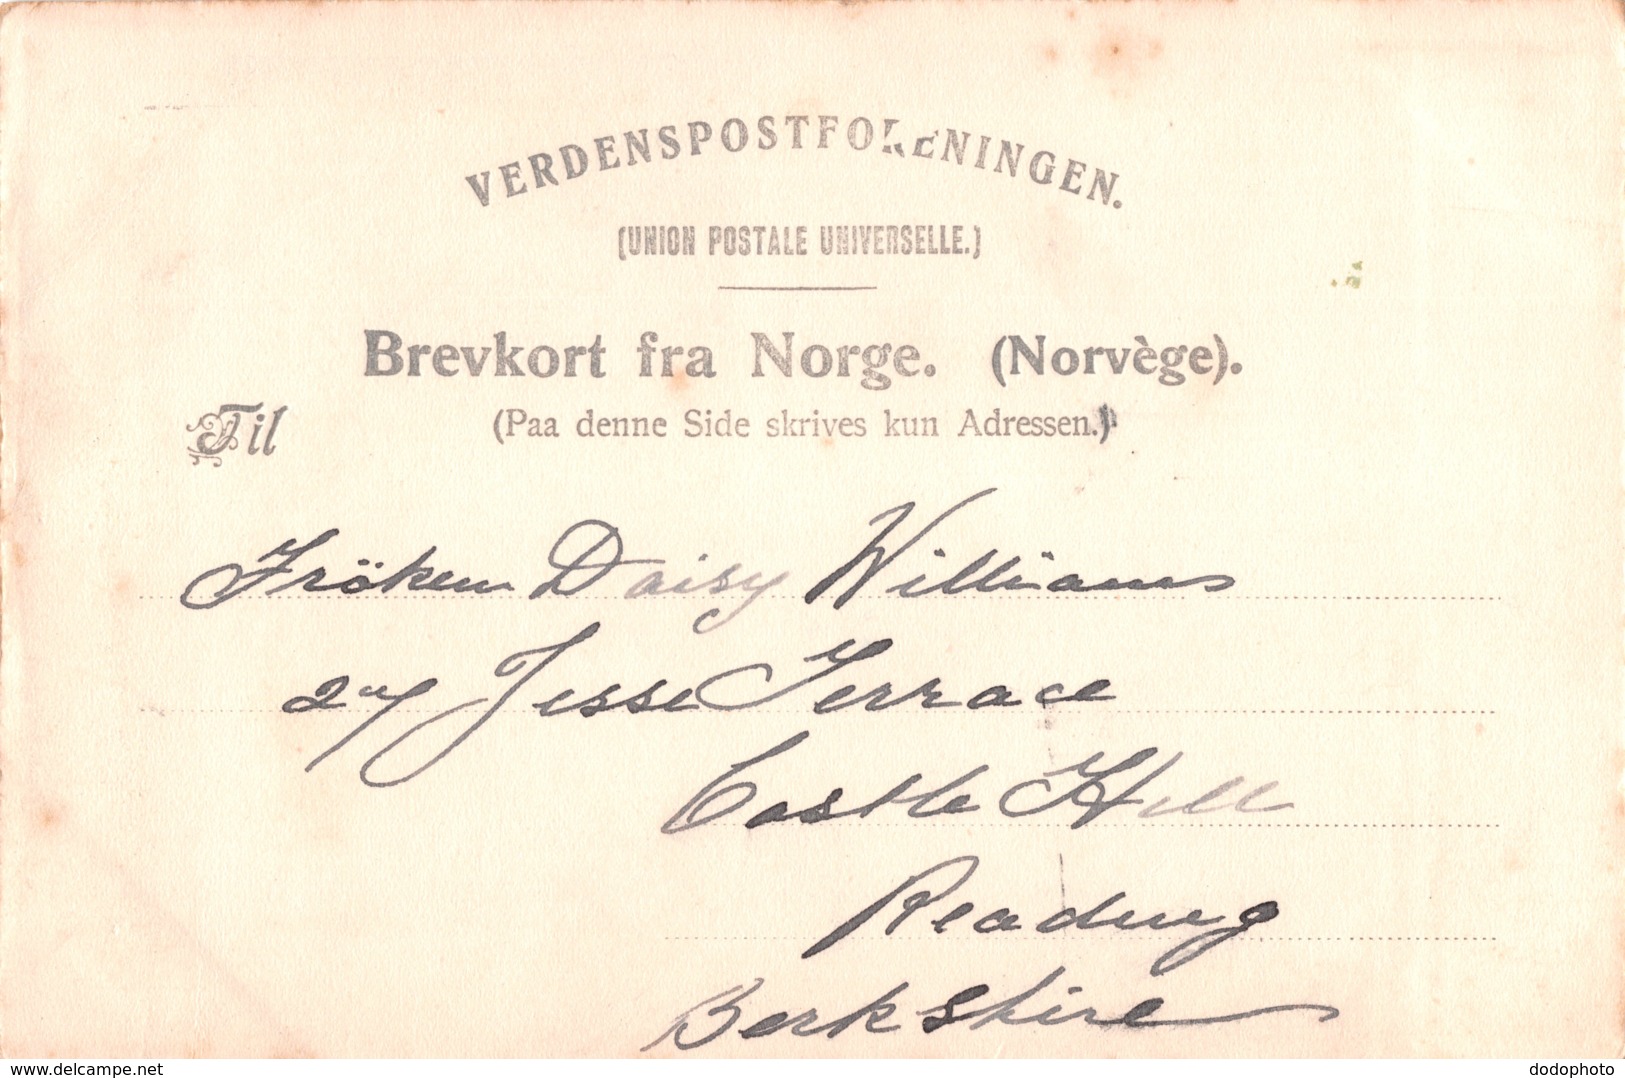 VERDENSPOSTFORENINGEN.
(UNION POSTALE UNIVERSELLE.)
Brevkort fra Norge. (Norvège).
Til (Paa denne Side skrives kun Adressen.)
Fröken Daisy Williams
27 Jesse Terrace
Castle Hill
Reading
Berkshire
www.delcampe.net
dodophoto